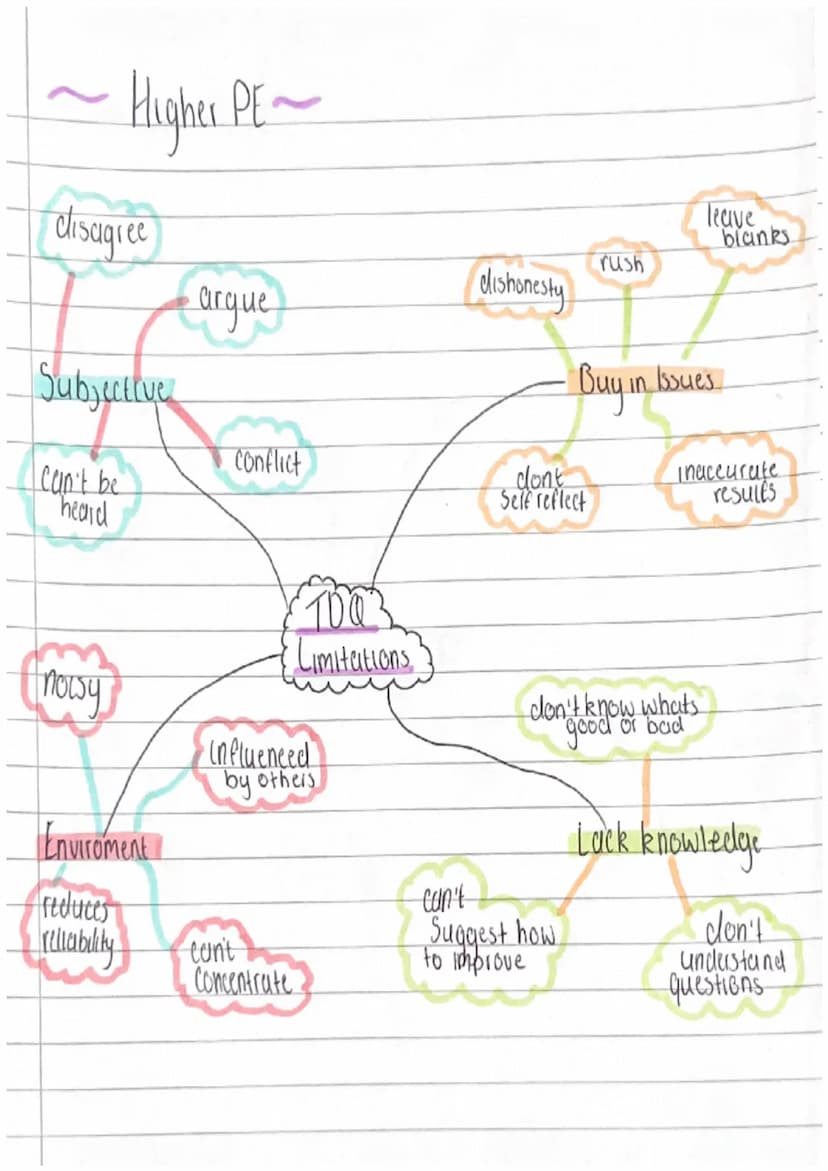 ~ Higher PE ~
disagree
argue
Subjective
can't be
heard
conflict
dishonesty
rush
leave
blanks
Buy in Issues
dont
self reflect
inaccurate
results
TDQ
Limitations
noisy
influenced
by others
Enviroment
reduces
reliability
can't
concentrate
don't know whats
good or bad
Lack knowledge
can't
suggest how
to improve
don't
understand
questions